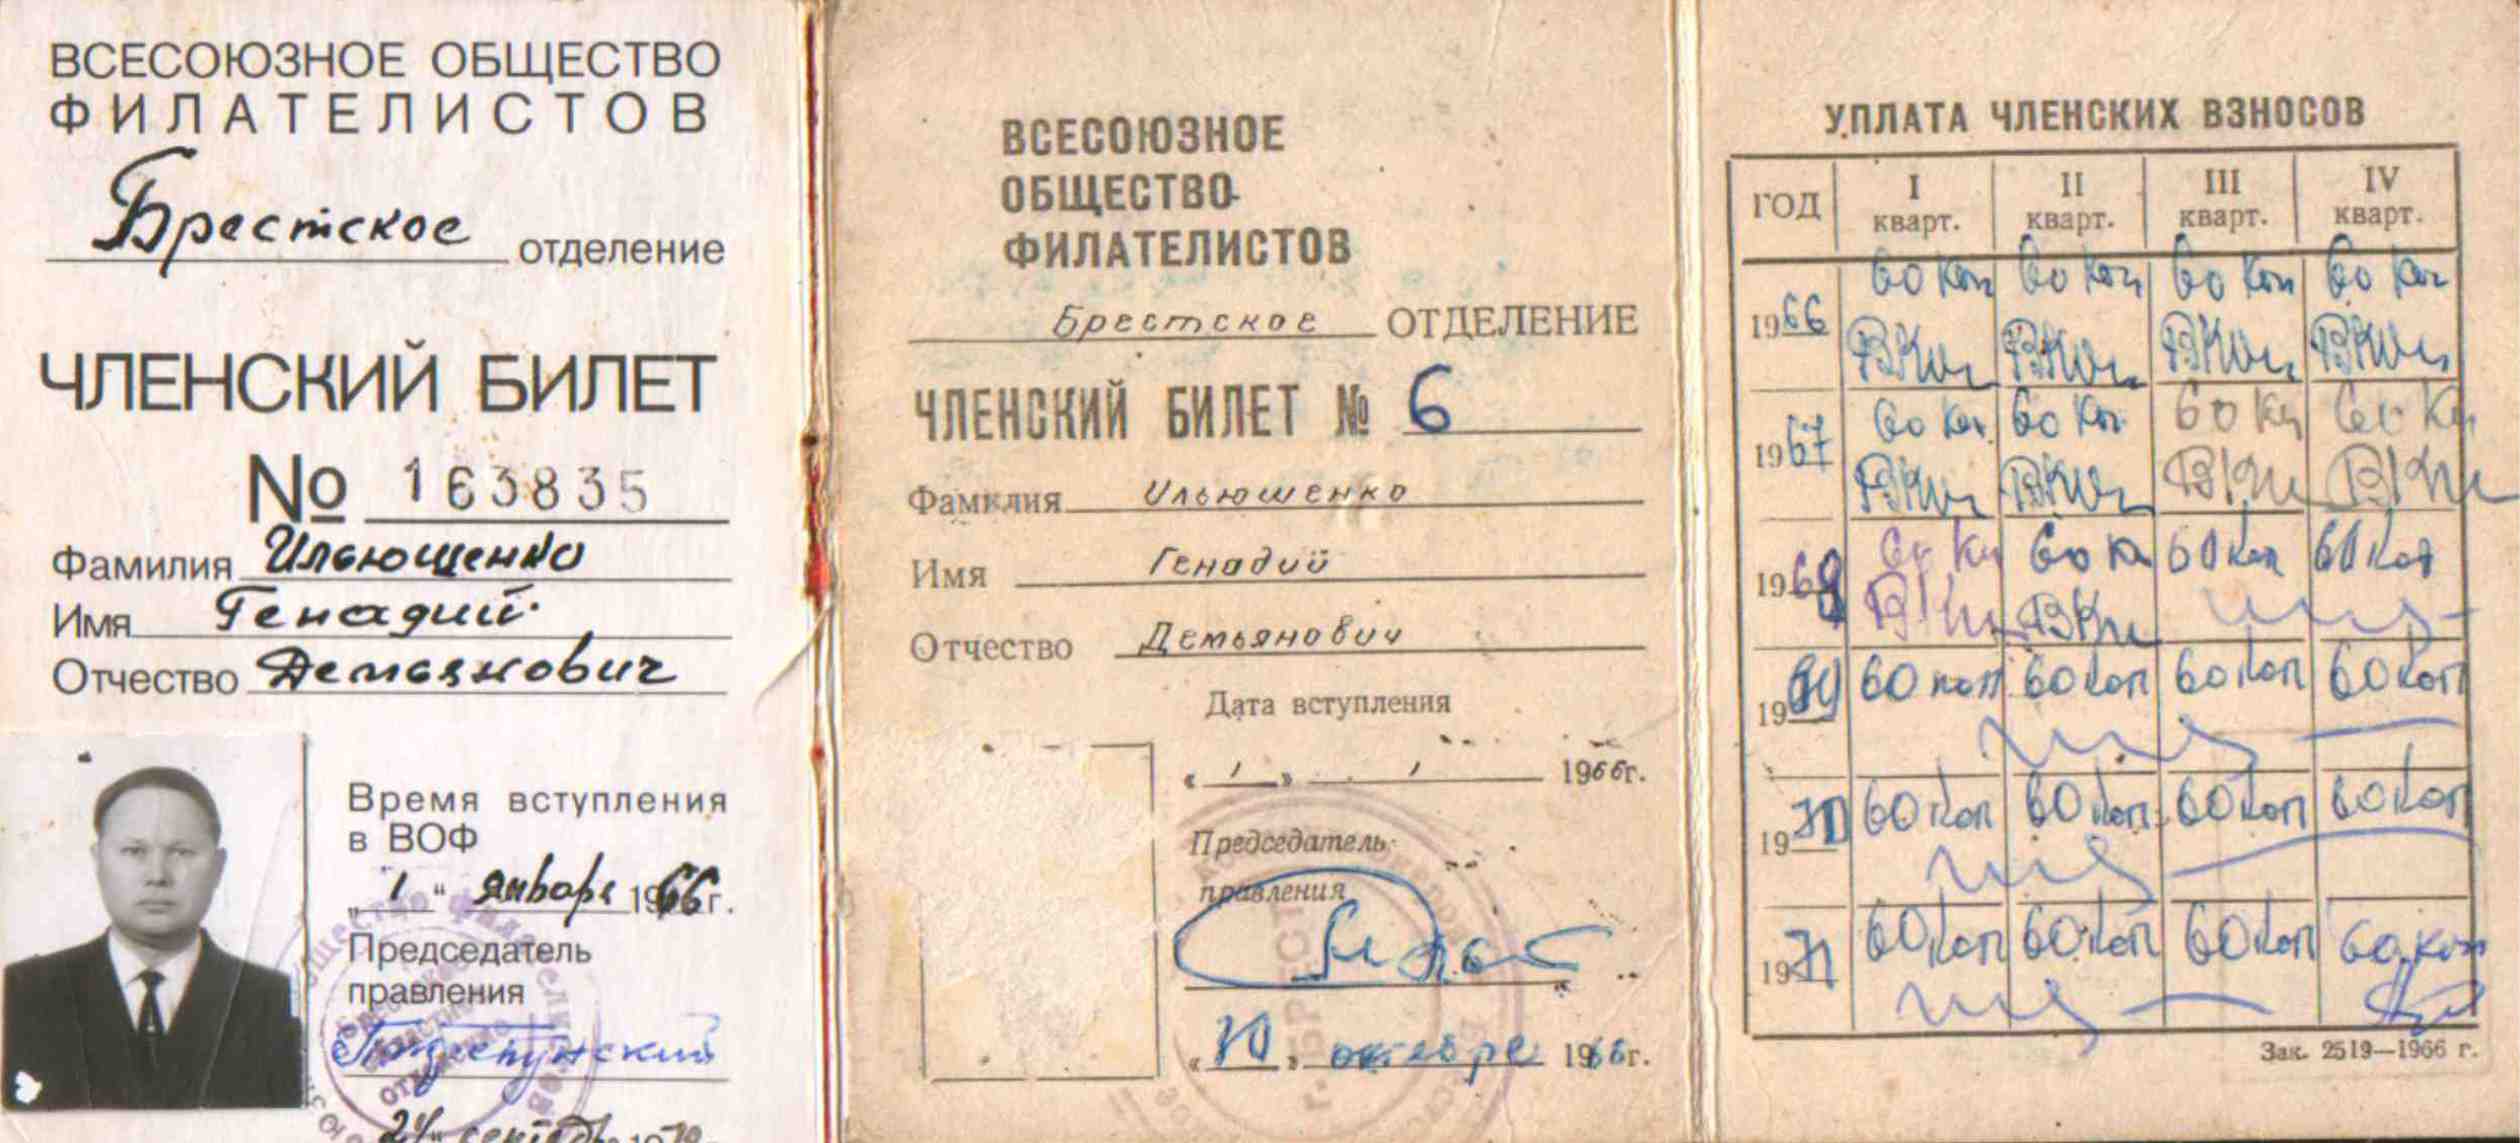 ВСЕСОЮЗНОЕ ОБЩЕСТВО
ФИЛАТЕЛИСТОВ
Брестское отделение
ЧЛЕНСКИЙ БИЛЕТ
№ 163835
Фамилия Ильюшенко
Имя Генадий
Отчество Демьянович
Время вступления
в ВОФ
„1“ января 1966 г.
Председатель
правления
ВСЕСОЮЗНОЕ
ОБЩЕСТВО
ФИЛАТЕЛИСТОВ
Брестское ОТДЕЛЕНИЕ
ЧЛЕНСКИЙ БИЛЕТ № 6
Фамилия Ильюшенко
Имя Генадий
Отчество Демьянович
Дата вступления
«1» 1 1966г.
Председатель
правления
«10» октября 1966г.
УПЛАТА ЧЛЕНСКИХ ВЗНОСОВ
ГОД I кварт. II кварт. III кварт. IV кварт.
60 коп 60 коп 60 коп 60 коп
1966
1967 60 коп 60 коп 60 к 60 к
1968 60 к 60 к 60 коп 60 коп
1969 60 коп 60 коп 60 коп 60 коп
1970 60 коп 60 коп 60 коп 60 коп
1971 60 коп 60 коп 60 коп 60 коп
Зак. 2519—1966 г.